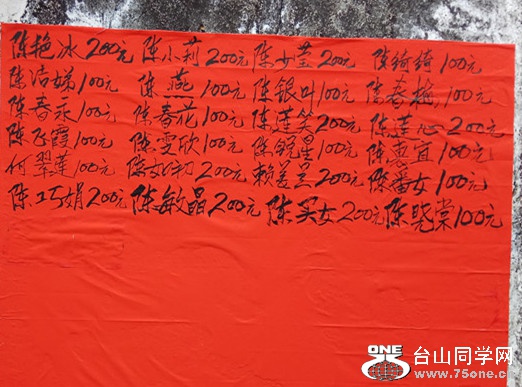 陈艳冰200元 陈小莉200元 陈少莹200元 陈绮绮100元
陈清娣100元 陈燕100元 陈银叶100元 陈春梅100元
陈春永100元 陈春花100元 陈莲笑200元 陈莲心200元
陈飞霞100元 陈雯欣100元 陈锦星100元 陈惠宜100元
何翠莲100元 陈 200元 赖 200元 陈 女100元
陈巧娟200元 陈敏晶200元 陈买女200元 陈晓棠100元
ONE
台山同学网
www.75one.c